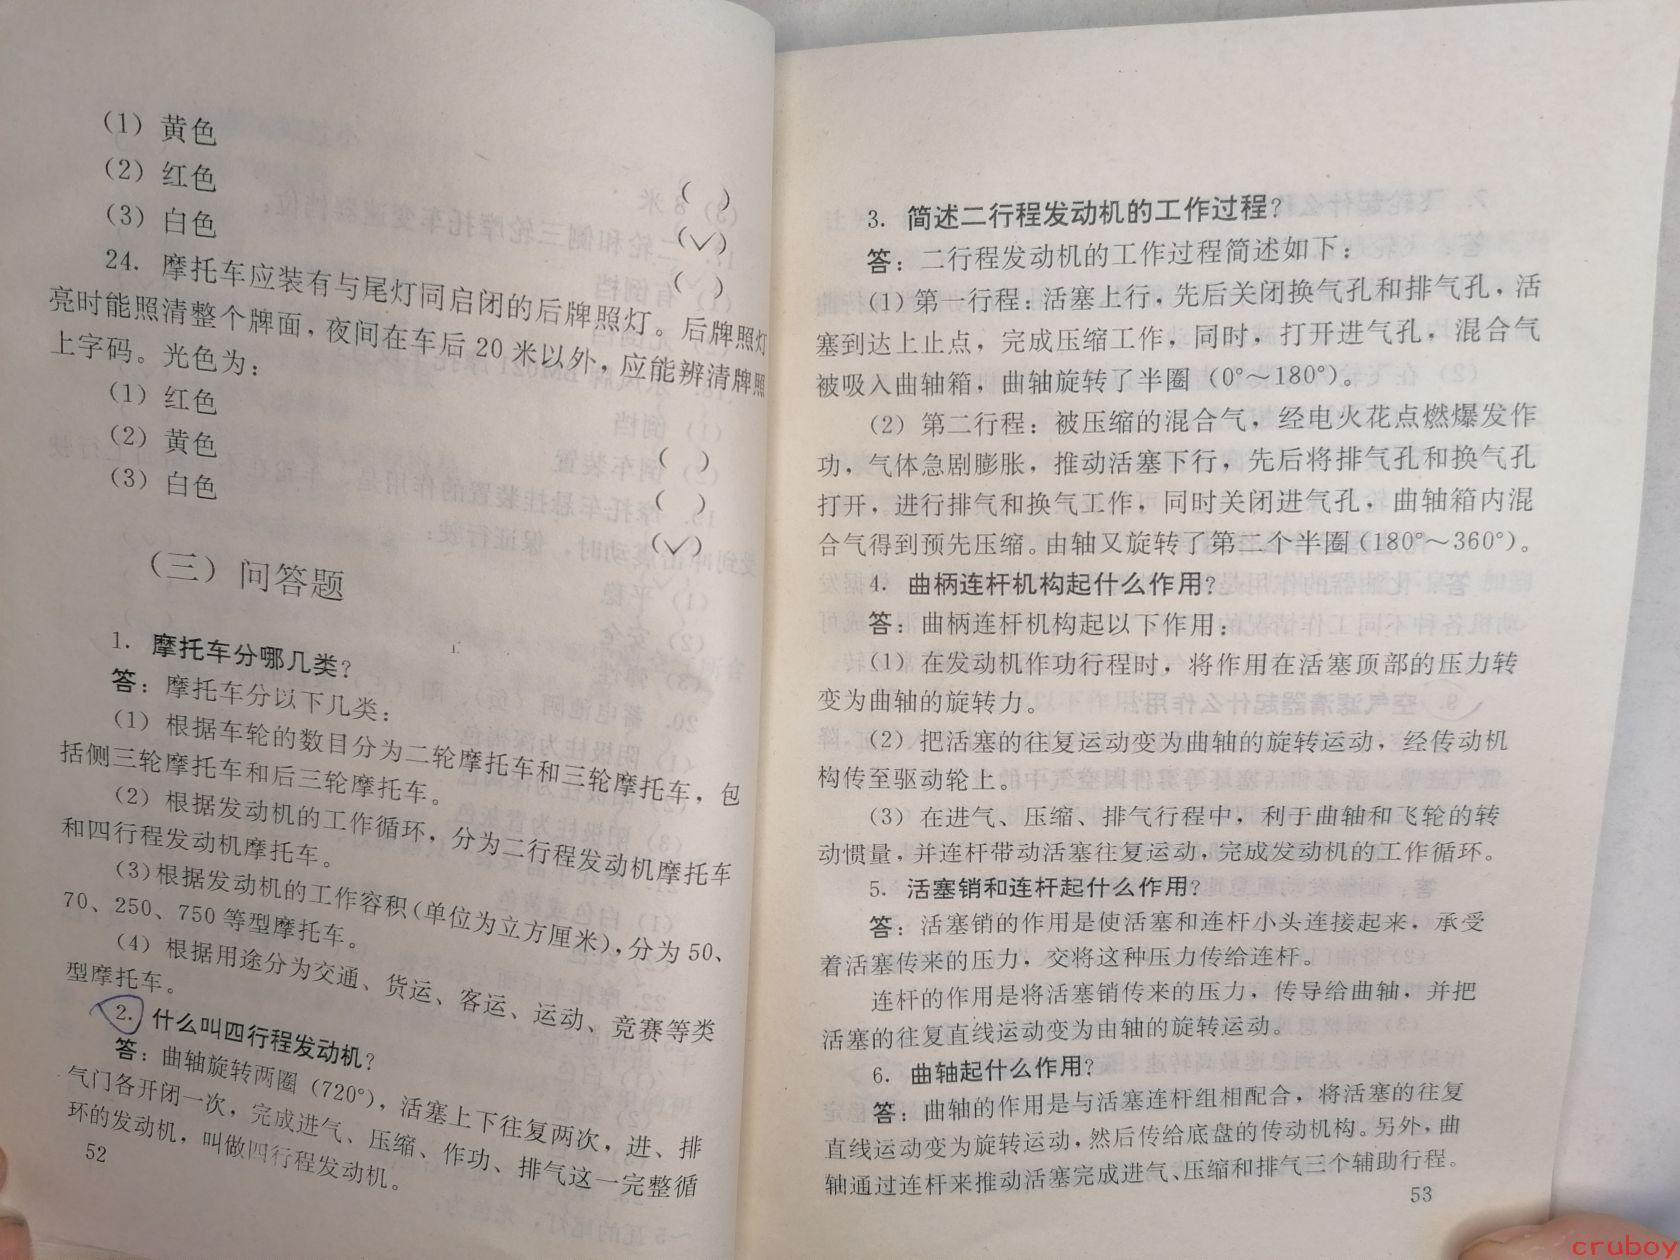 (1) 黄色
(2) 红色 ( )
(3) 白色 (✓)
24. 摩托车应装有与尾灯同启闭的后牌照灯。后牌照灯 ( )
亮时能照清整个牌面，夜间在车后20米以外，应能辨清牌照
上字码。光色为：
(1) 红色
(2) 黄色 ( )
(3) 白色 ( )
(✓)
(三) 问答题
1. 摩托车分哪几类？
答：摩托车分以下几类：
(1) 根据车轮的数目分为二轮摩托车和三轮摩托车，包
括侧三轮摩托车和后三轮摩托车。
(2) 根据发动机的工作循环，分为二行程发动机摩托车
和四行程发动机摩托车。
(3)根据发动机的工作容积(单位为立方厘米)，分为50、
70、250、750等型摩托车。
(4) 根据用途分为交通、货运、客运、运动、竞赛等类
型摩托车。
2. 什么叫四行程发动机？
答：曲轴旋转两圈（720°），活塞上下往复两次，进、排
气门各开闭一次，完成进气、压缩、作功、排气这一完整循
环的发动机，叫做四行程发动机。
52
3. 简述二行程发动机的工作过程？
答：二行程发动机的工作过程简述如下：
(1) 第一行程：活塞上行，先后关闭换气孔和排气孔，活
塞到达上止点，完成压缩工作，同时，打开进气孔，混合气
被吸入曲轴箱，曲轴旋转了半圈（0°～180°）。
(2) 第二行程：被压缩的混合气，经电火花点燃爆发作
功，气体急剧膨胀，推动活塞下行，先后将排气孔和换气孔
打开，进行排气和换气工作，同时关闭进气孔，曲轴箱内混
合气得到预先压缩。由轴又旋转了第二个半圈(180°～360°)。
4. 曲柄连杆机构起什么作用？
答：曲柄连杆机构起以下作用：
(1) 在发动机作功行程时，将作用在活塞顶部的压力转
变为曲轴的旋转力。
(2) 把活塞的往复运动变为曲轴的旋转运动，经传动机
构传至驱动轮上。
(3) 在进气、压缩、排气行程中，利于曲轴和飞轮的转
动惯量，并连杆带动活塞往复运动，完成发动机的工作循环。
5. 活塞销和连杆起什么作用？
答：活塞销的作用是使活塞和连杆小头连接起来，承受
着活塞传来的压力，交将这种压力传给连杆。
连杆的作用是将活塞销传来的压力，传导给曲轴，并把
活塞的往复直线运动变为由轴的旋转运动。
6. 曲轴起什么作用？
答：曲轴的作用是与活塞连杆组相配合，将活塞的往复
直线运动变为旋转运动，然后传给底盘的传动机构。另外，曲
轴通过连杆来推动活塞完成进气、压缩和排气三个辅助行程。
53
cruboy